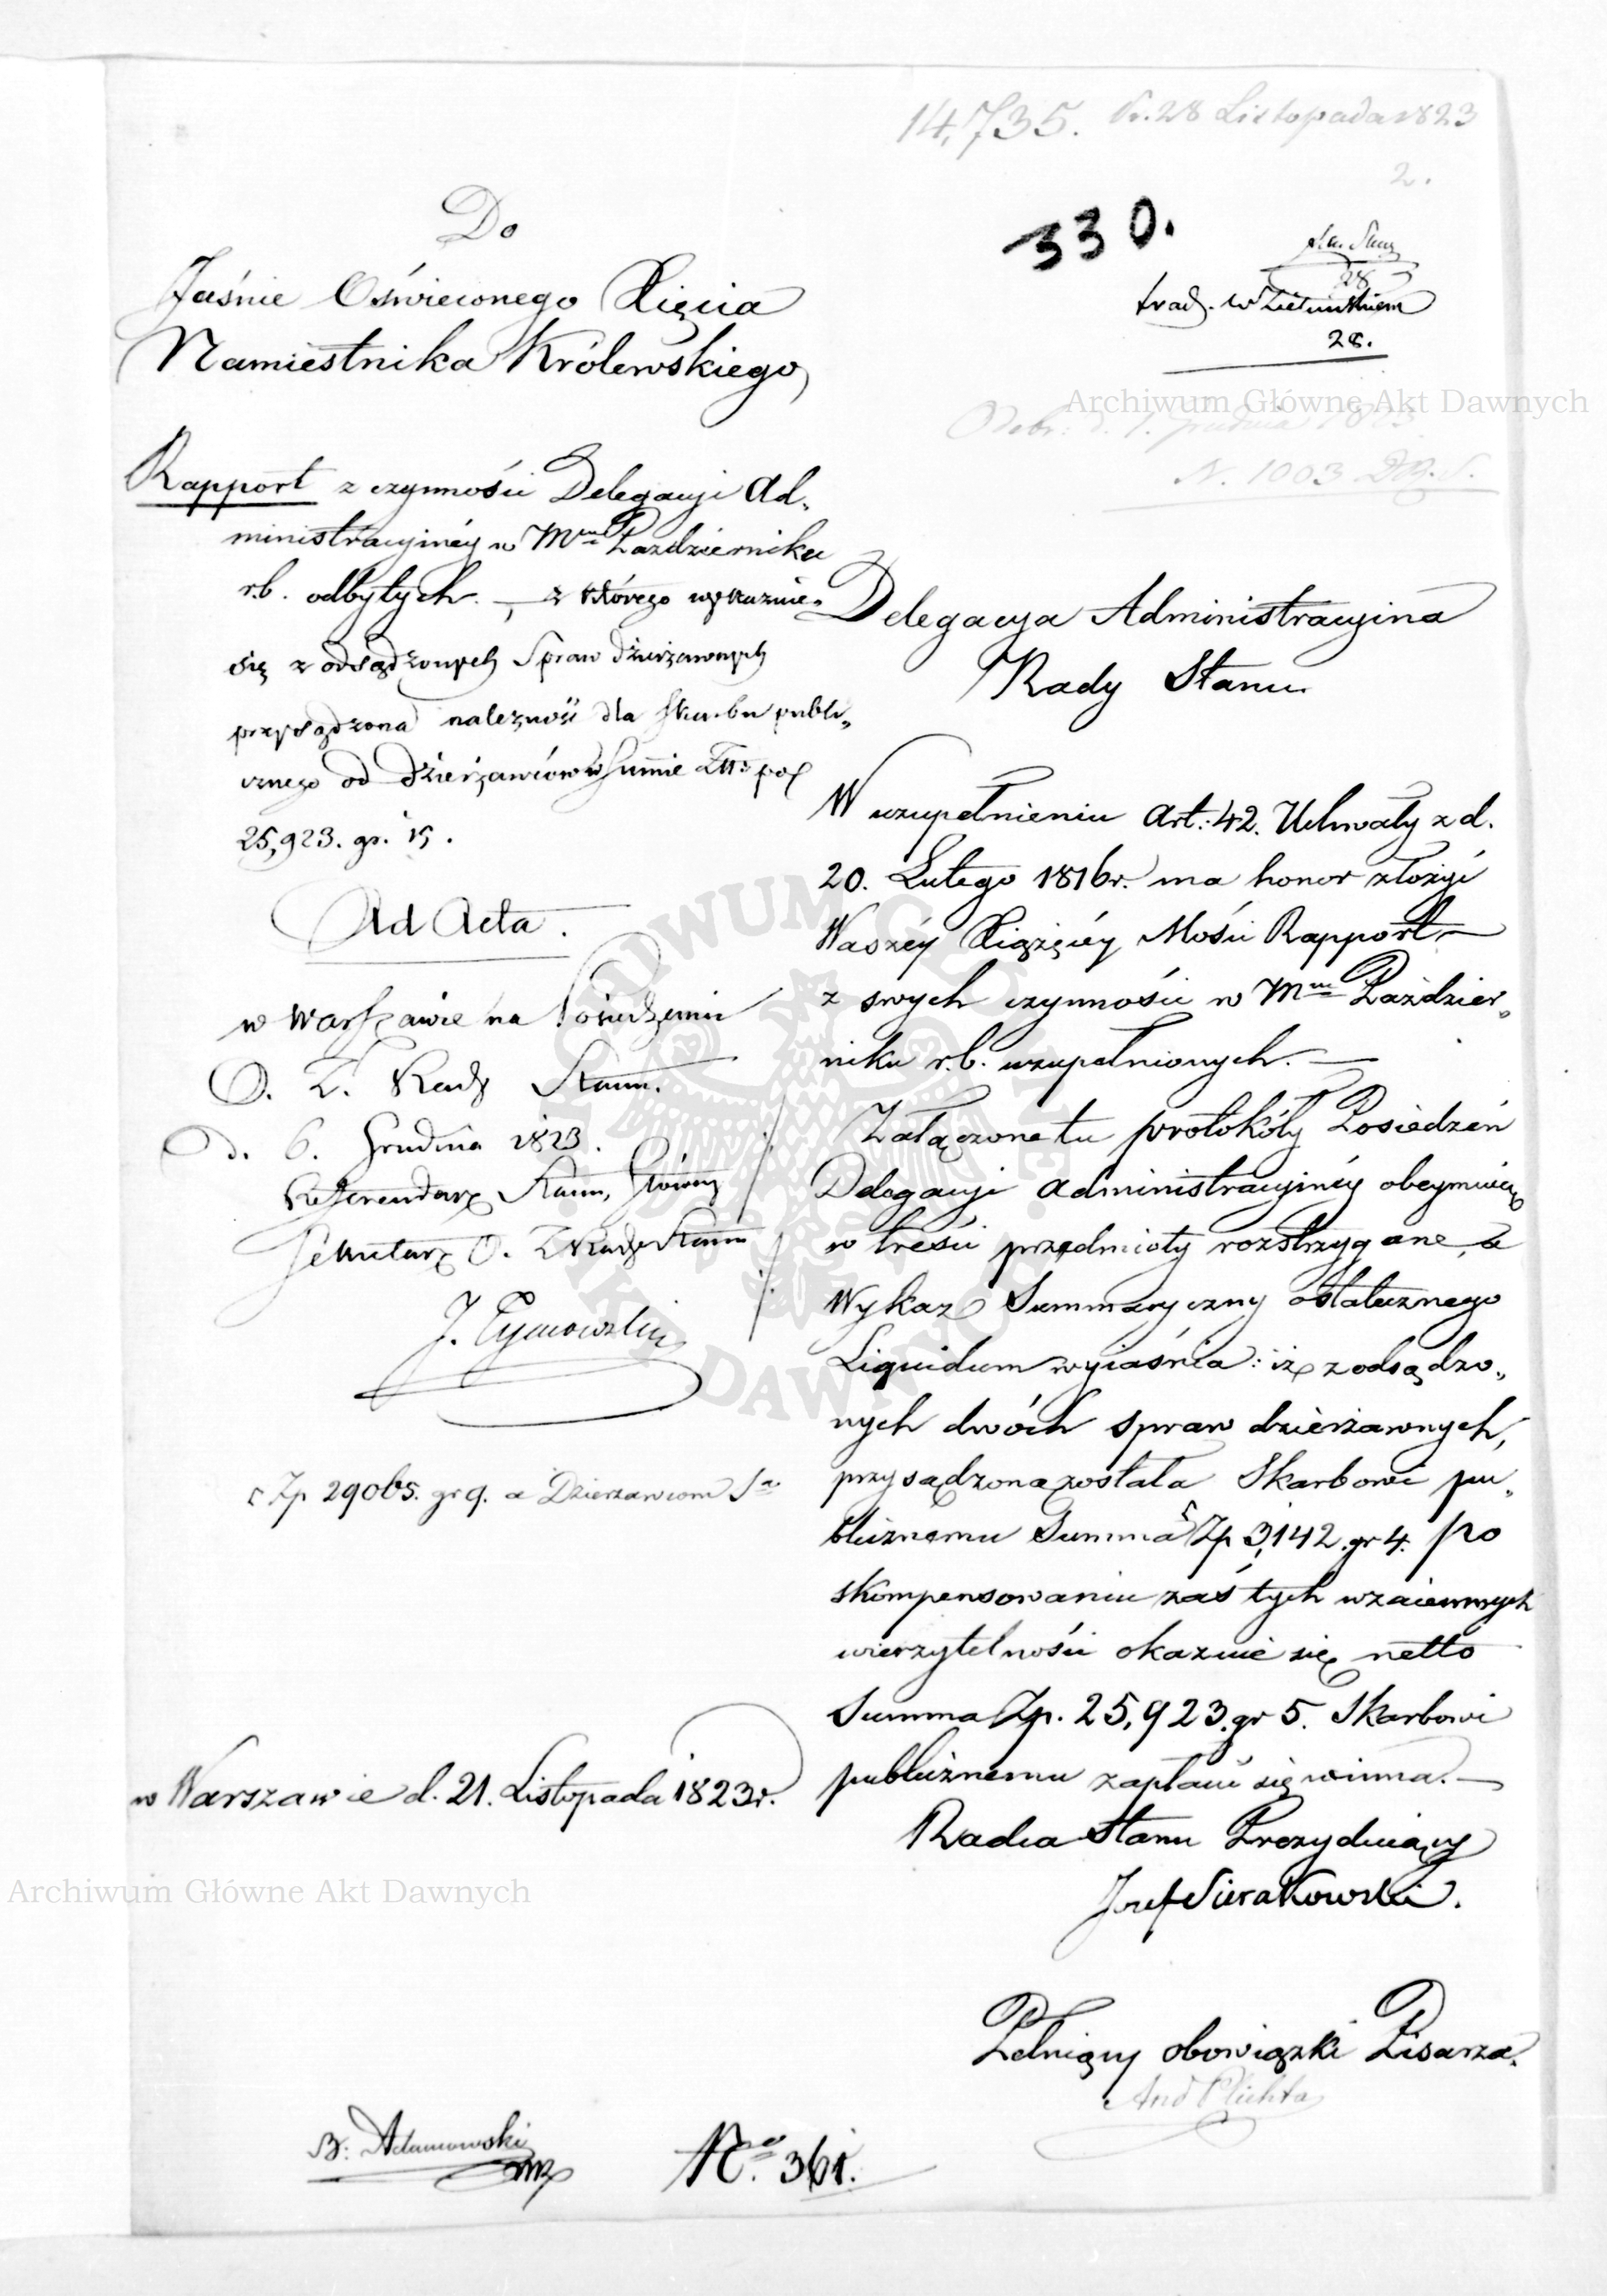 14,735. Pr. 28 Listopada 1823
2.
330.
28
28.
Odebr: d. 1. grudnia 1823
N. 1003
Do
Jaśnie Oświeconego Xięcia
Namiestnika Królewskiego,
Rapport z czynności Delegacyi Ad„
ministracyinéy w Mcu Październiku
r.b. odbytych. — z którego wykazuie„
się z odsądzonych Spraw dzierżawnych
przysądzona należność dla Skarbu publi„
cznego od dzierżawców w Summie Złt: pol
25,923. gr. 15.
Ad Acta.
w Warszawie na Posiedzeniu
O. Z. Rady Stanu.
D. 6. Grudnia 1823.
Referendarz Stanu, Główny
Sekretarz O. Z Rady Stanu
J. Tymowski
r Zp 29065. gr 9. a Dzierżawcom Sa
w Warszawie d. 21. Listopada 1823r.
Delegacya Administracyina
Rady Stanu
W uzupełnieniu Art: 42. Uchwały z d.
20. Lutego 1816r. ma honor złożyć
Waszéy Xiążęcéy Mości Rapport —
z swych czynności w Mcu Paździer„
niku r.b. uzupełnionych. —
Załączone tu protokóły Posiedzeń
Delegacyi Administracyinéy obeymuiąc
w treści przedmioty rozstrzygane, a
Wykaz Summaryczny ostatecznego
Liquidum wyiaśnia: iż z odsądzo„
nych dwóch spraw dzierżawnych,
przysądzona została Skarbowi pu„
blicznemu Summa Zp 3,142 gr 4. po
skompensowaniu zaś tych wzaiemnych
wierzytelności okazuie się netto
Summa Zp. 25,923. gr 5. Skarbowi
publicznemu zapłacić się winna. —
Radca Stanu Prezyduiący
Józef Sierakowski.
Pełniący obowiązki Pisarza.
And Plichta
B: Adamowski
No. 361.
Archiwum Główne Akt Dawnych
Archiwum Główne Akt Dawnych
ARCHIWUM GŁÓWNE
AKT DAWNYCH